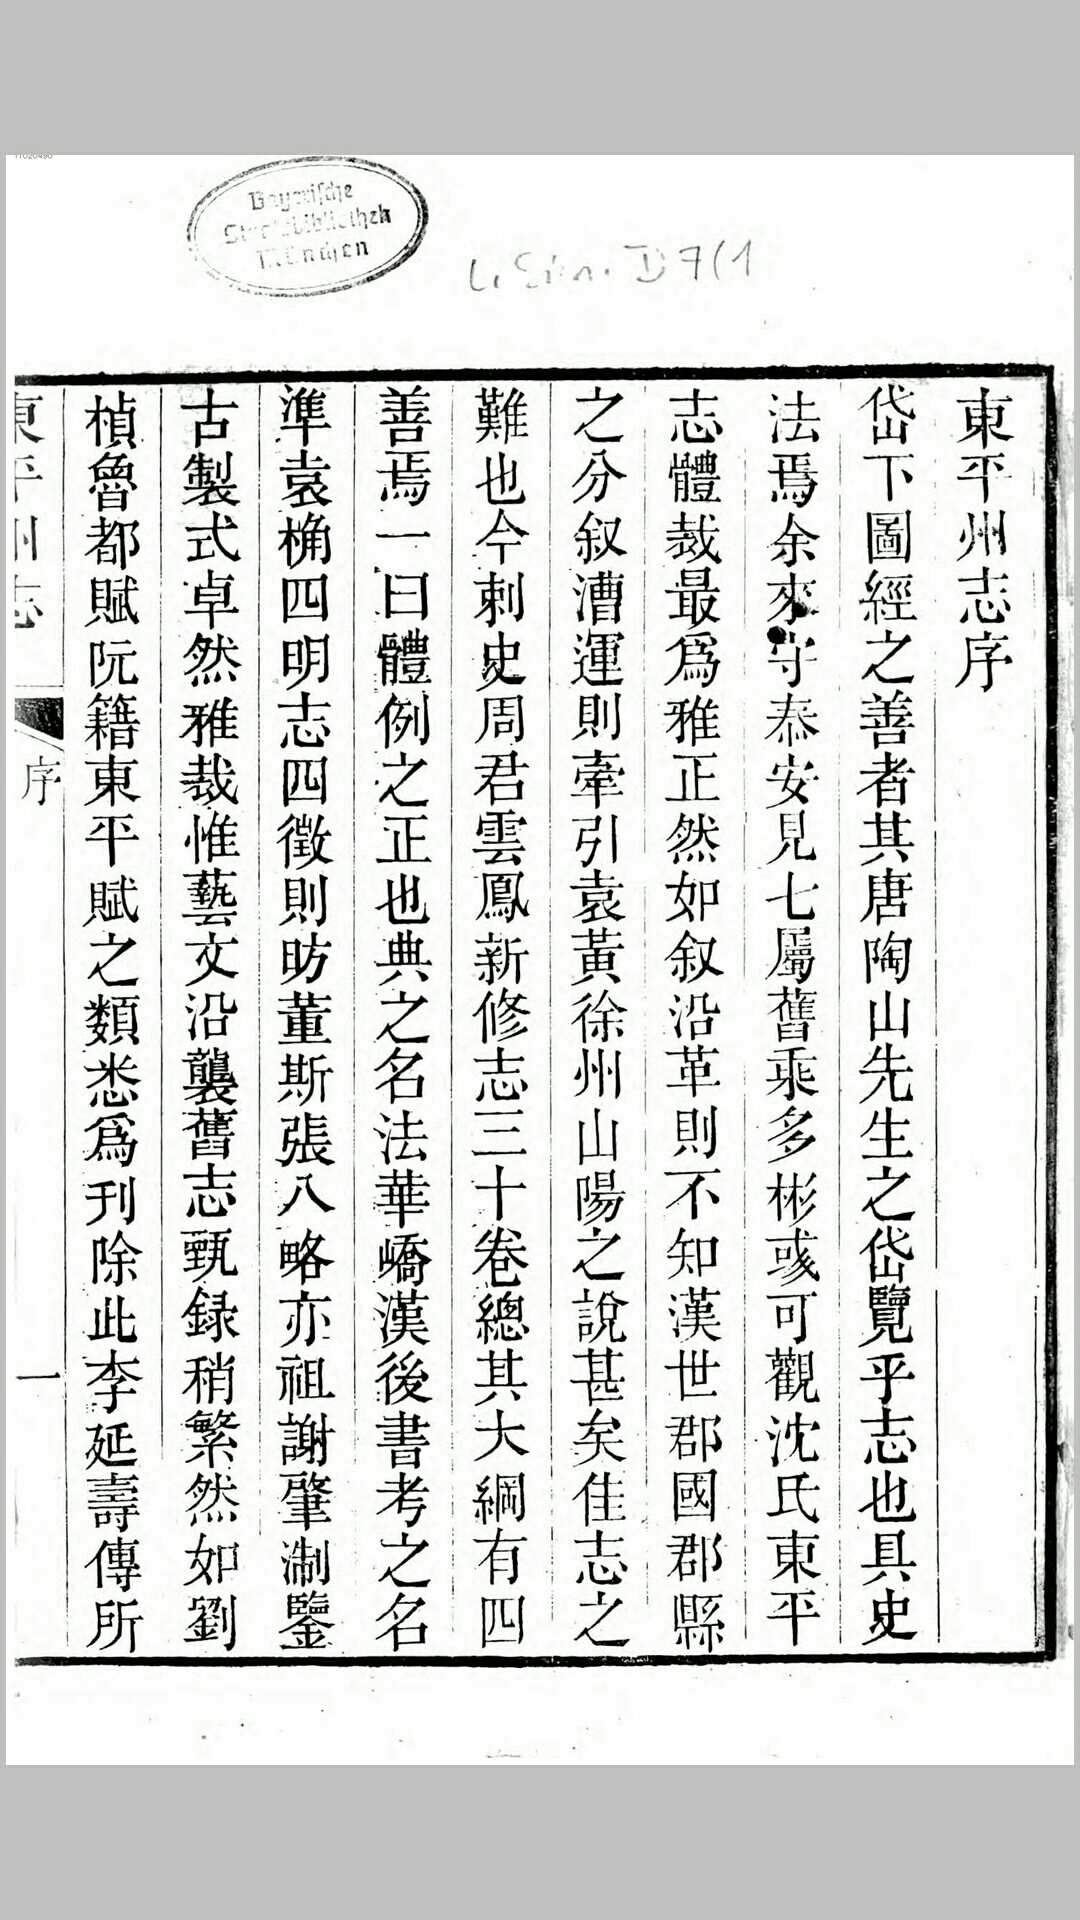 11020490
Bayerische
Staatsbibliothek
München
L. Sin. D 7(1
東平州志序
岱下圖經之善者其唐陶山先生之岱覽乎志也具史
法焉余來守泰安見七屬舊乘多彬彧可觀沈氏東平
志體裁最爲雅正然如叙沿革則不知漢世郡國郡縣
之分叙漕運則牽引袁黃徐州山陽之說甚矣佳志之
難也今刺史周君雲鳳新修志三十卷總其大綱有四
善焉一曰體例之正也典之名法華嶠漢後書考之名
準袁桷四明志四徵則昉董斯張八略亦祖謝肇淛鑒
古製式卓然雅裁惟藝文沿襲舊志甄録稍繁然如劉
楨魯都賦阮籍東平賦之類悉爲刊除此李延壽傳所
東平州志
序
一